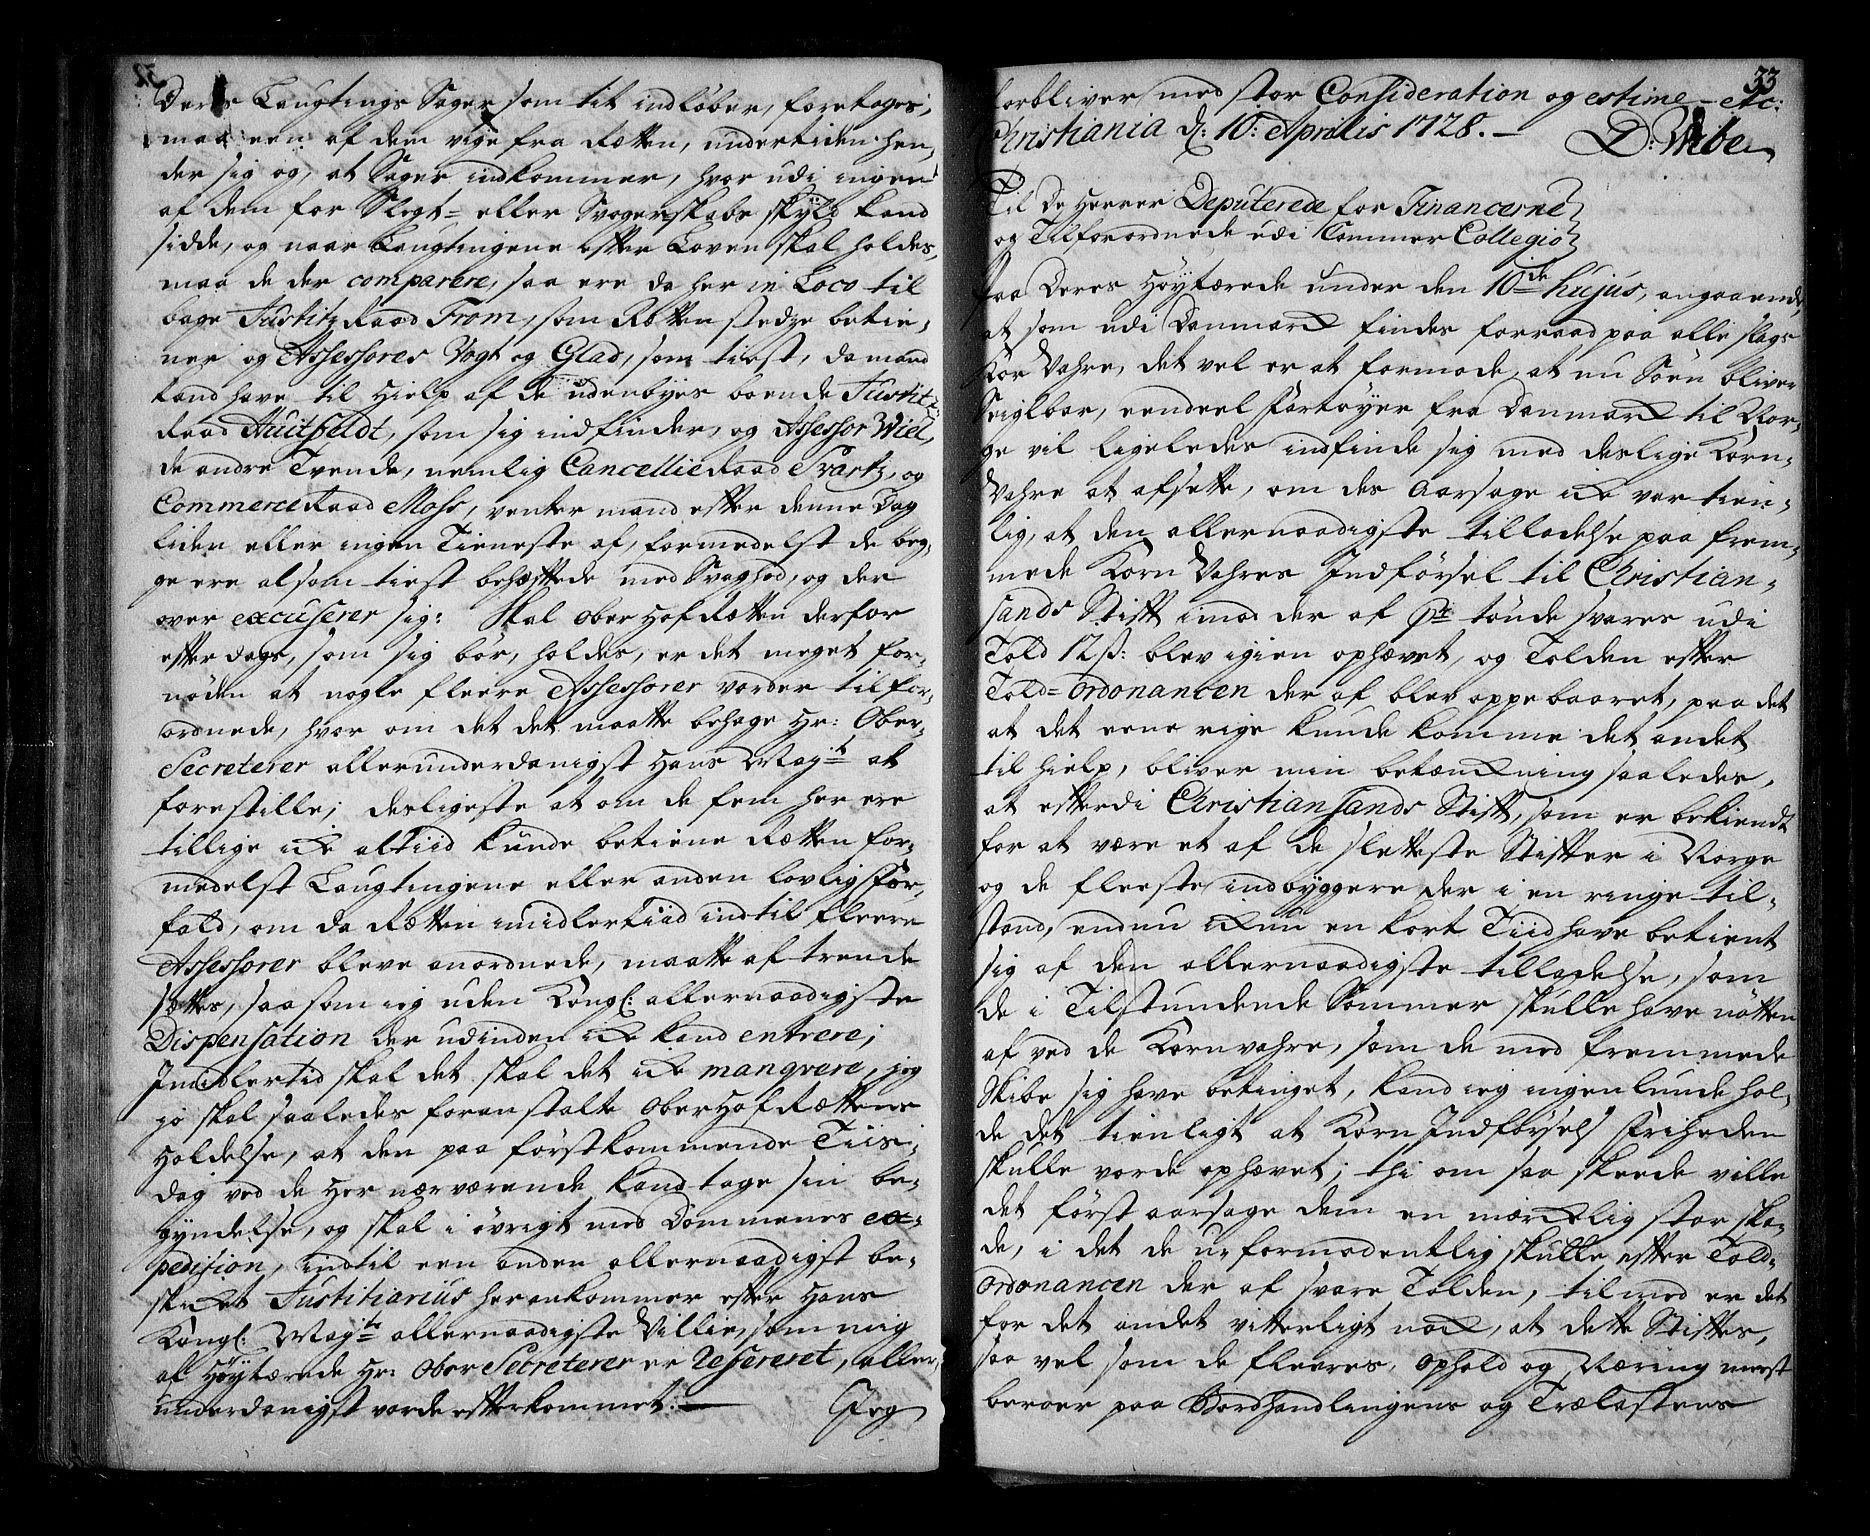 Deres Laugtings Sager som tit indløber, foretages,
maa een af dem vige fra Rætten, undertiden hen,,
der sig og, at Sager indkommer, hvor udi ingen
af dem for Slegt- eller Svogerskabs skyld kand
sidde, og naar Laugtingene efter Loven skal holdes,
maa de der comparere, saa ere da her in Loco til
bage Justitz Raad From, som Rætten stedze betie,,
ner og Assessores Vogt og Glad, som tiest, da mand
kand have til Hielp af de udenbyes boende Justitz
Raad Huitfeldt, som sig indfinder, og Assessor Wiel,
de andre Tvende, nemlig Cancellie Raad Svartz, og
Commerce Raad Mohr, venter mand efter denne Dag
liden eller ingen Tieneste af, formedelst de beg,,
ge ere alsom tiest behæftede med Svaghed, og der
over excuserer sig: Skal Ober Hof Rætten derfor
efter dags, som sig bør, holdes, er det meget for,,
nøden at nogle fleere Assessorer vorder tilfor,,
ordnede, hvor om det det maatte behage Hr: Ober,,
Secreterer allerunderdanigst Hans Mayt: at
forestille; desligeste at om de fem her ere
tillige icke altiid kunde betiene Rætten for,,
medelst Laugtingene eller anden lovlig For,,
fald, om da Rætten imidlertiid indtil fleere
Assessorer bleve anordnede, maatte af trende
sættes, saa som ieg uden Kongl: allernaadigste
Dispensation der udinden icke kand entrere;
Imidlertid skal det skal det icke manqvere, jeg
jo skal saaledes foranstalte Ober Hof Rættens
Holdelse, at den paa førstkommende Tiis,,
dag ved de Her nærværende kand tage sin be,,
gyndelse, og skal i øvrigt med Dommenes ex,,
pedition, indtil een anden allernaadigst be,,
skicket Justitiarius her ankommer efter Hans
Kongl: Mayts allernaadigste Villie, som mig
af Høytærede Hr: Ober Secreterer er refereret, aller,,
underdanigst vorde efterkommet:
Jeg
33
forbliver med stor Consideration og estime - etc:
Christiania d: 10: Aprilis 1728.
D: Wibe
Til De Herrer Deputerede for Financerne
og Tilforordnede udi Commer Collegio
Paa Deres Høytærede under den 10de hujus, angaaende,
at som udi Danmark findes forraad paa alle slags
Kor Vahre, det vel er at formode, at nu Søen bliver
Seiglbar, eendeel Fartøyer fra Danmark til Nor,,
ge vil ligeledes indfinde sig med deslige Korn,,
Vahre at afsette, om des Aarsage icke var tien,,
lig, at den allernaadigste tilladelse paa frem,,
mede Korn Vahres Indførsel til Christian,,
sands Stift imod der af pr tønde svares udi
Told 12 s: blev igien ophævet, og Tolden efter
Told-Ordonancen der af blev oppebaaret, paa det
at det eene rige kunde komme det andet
til hielp, bliver min betænckning saaledes,
at efterdi Christiansands Stift, som er bekiendt
for at være et af de sletteste Stifter i Norge
og de fleeste indbyggere der i en ringe til,,
stand, endnu ickun en kort Tiid have betient
sig af den allernaadigste tilladelse, som
de i Tilstundende Sommer skulle have nøtten
af ved de Kornvahre, som de med fremmede
Skibe sig have betinget, kand ieg ingenlunde hol,,
de det tienligt at Korn Indførsels Friheden
skulle vorde ophævet; thi om saa skeede ville
det først aarsage dem en mærckelig stor ska,,
de, i det de uformodentlig skulle efter Told-
Ordonancen der af svare Tolden, tilmed er det
for det andet vitterligt nock, at dette Stiftes,
saa vel som de fleeres, Ophold og Næring meest
beroer paa Bordhandlingens og Trælastens